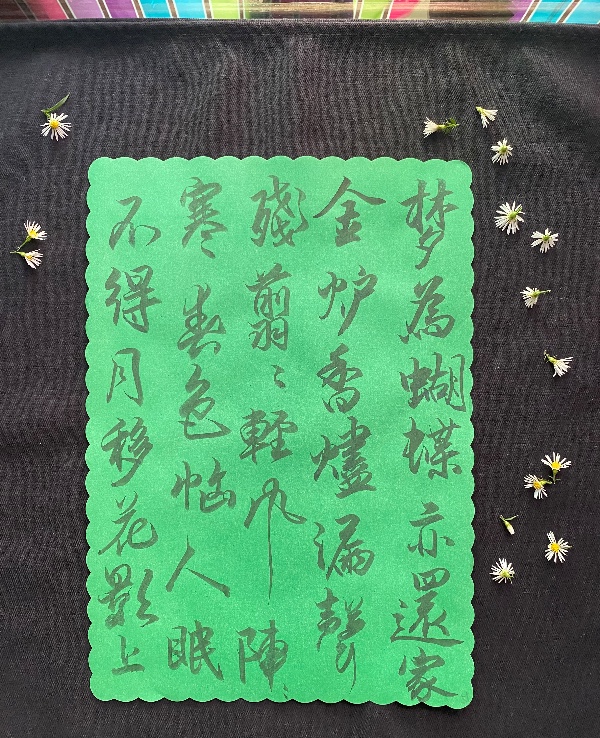 梦為蝴蝶亦還家
金炉香燼漏聲
殘翦〻輕风陣〻
寒春色恼人眠
不得月移花影上